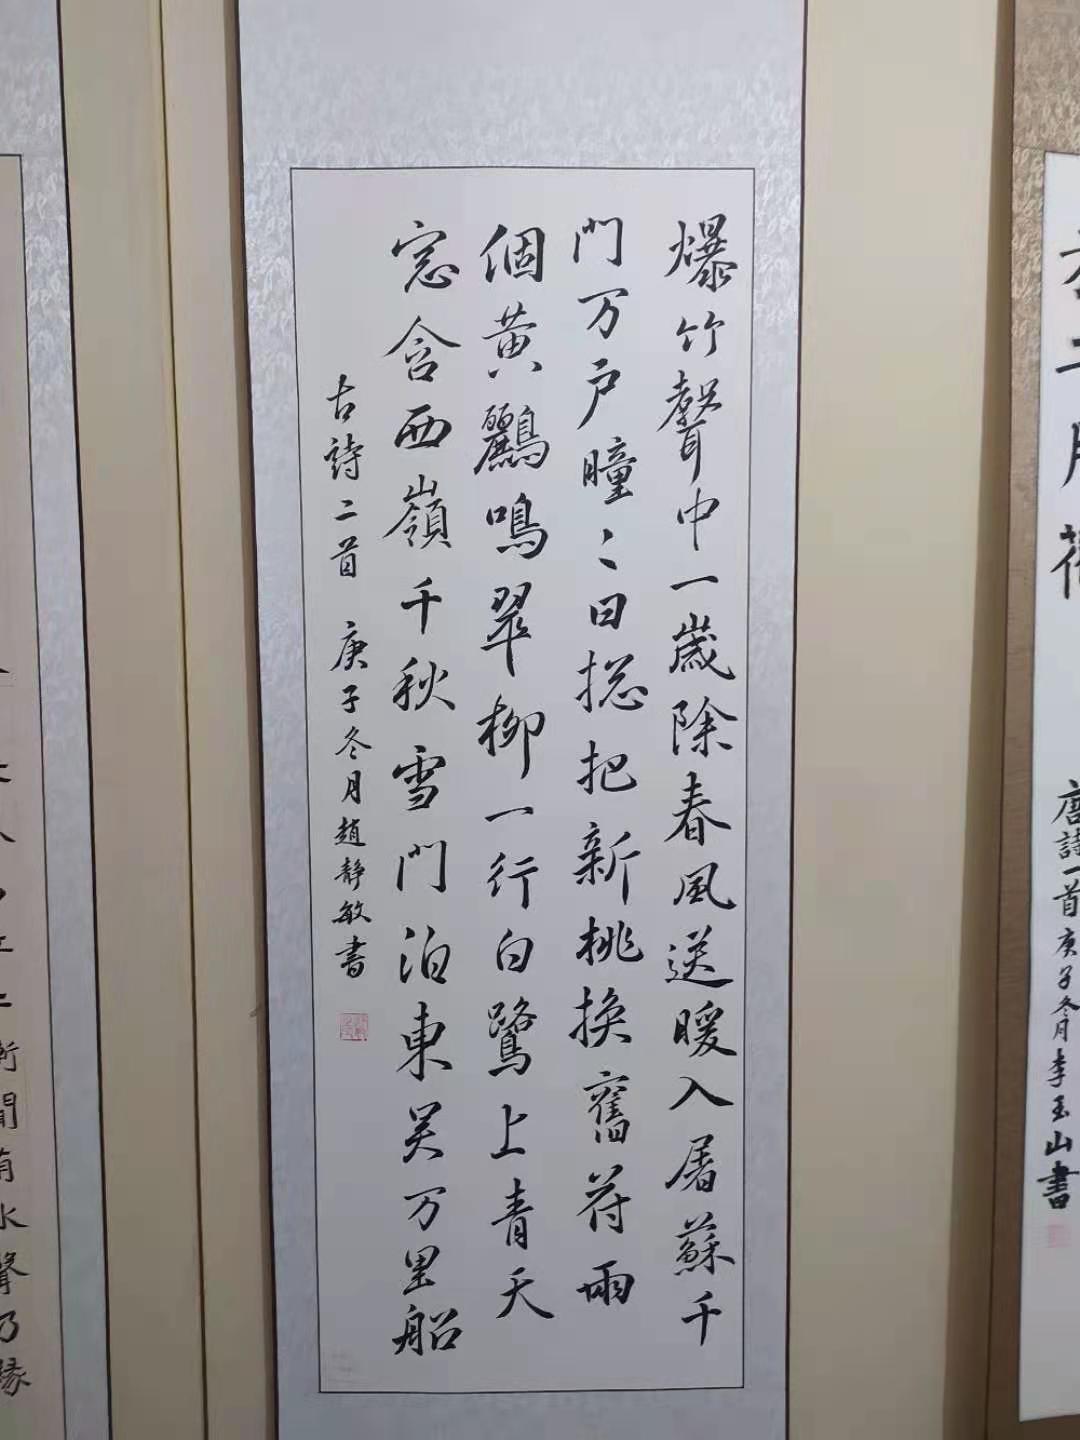 唐詩一首庚子冬月李玉山書
爆竹聲中一歲除春風送暖入屠蘇千
門万户瞳〻日揔把新桃換舊苻兩
個黄鸝鳴翠柳一行白鷺上青天
窓含西嶺千秋雪門泊東吴万里船
古詩二首 庚子冬月趙静敏書
水聲乃